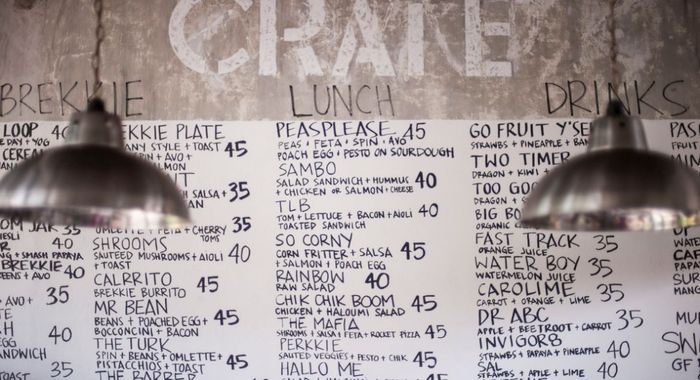 CRATE
BREKKIE
LOOP 40
DAY + YOG
CEREAL
JAR 35
40
+ SMASH PAPAYA
BREKKIE
EENS + AVO 40
35
AVO +
40
EGG
SANDWICH
40
BREKKIE PLATE
ANY STYLE + TOAST 45
SPIN + AVO +
SALSA + 35
FETA + CHERRY TOMS 35
SHROOMS
SAUTEED MUSHROOMS + AIOLI 40
+ TOAST
CALRRITO
BREKKIE BURRITO 45
MR BEAN
BEANS + POACHED EGG + 45
BOCCONCINI + BACON
THE TURK
SPIN + BEANS + OMLETTE + 45
PISTACCHIOS + TOAST
THE BARBER
LUNCH
PEASPLEASE 45
PEAS + FETA + SPIN + AVO
POACH EGG + PESTO ON SOURDOUGH
SAMBO
SALAD SANDWICH + HUMMUS 40
+ CHICKEN OR SALMON + CHEESE
TLB
TOM + LETTUCE + BACON + AIOLI 40
TOASTED SANDWICH
SO CORNY
CORN FRITTER + SALSA 45
+ SALMON + POACH EGG
RAINBOW 40
RAW SALAD
CHIK CHIK BOOM 45
CHICKEN + HALOUMI SALAD
THE MAFIA
SHROOMS + SALSA + FETA + ROCKET PIZZA 45
PERKKIE
SAUTED VEGGIES + PESTO + CHIK 45
HALLO ME
DRINKS
GO FRUIT Y'SE
STRAWBS + PINEAPPLE + BAN
TWO TIMER
DRAGON + KIWI +
TOO GOO
DRAGON + S
BIG BO
ORGANIC
FAST TRACK 35
ORANGE JUICE
WATER BOY 35
WATERMELON JUICE
CAROLIME 35
CARROT + ORANGE + LIME
DR ABC 35
APPLE + BEETROOT + CARROT
INVIGOR8
STRAWBS + PAPAYA + PINEAPPLE 40
SAL
STRAWBS + APPLE + LIME 35